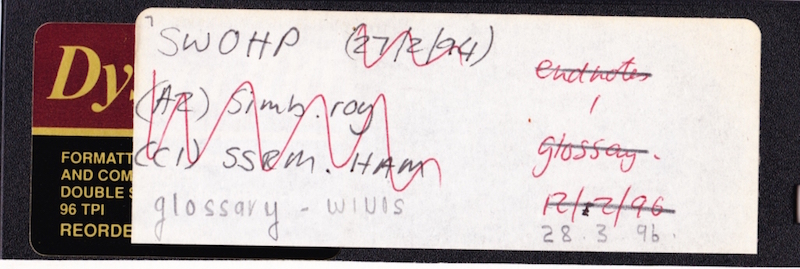 7
SWOHP (27/2/94)
(A2) Simb.roy
(C1) SSRM. HAM
glossary - WINIS
endnotes
glossay.
12/2/96
28.3.96.
Dys
FORMATT
AND COM
DOUBLE S
96 TPI
REORDE